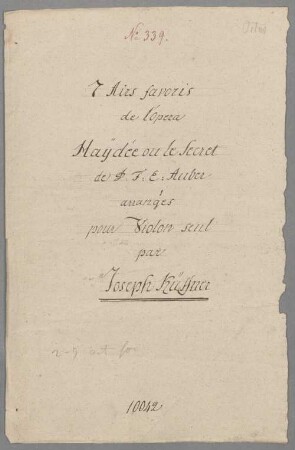 No. 339.
7 Airs favoris
de l'opera
Haÿdée ou le Secret
de D. F. E. Auber
arrangés
pour Violon seul
par
Joseph Küffner
10042